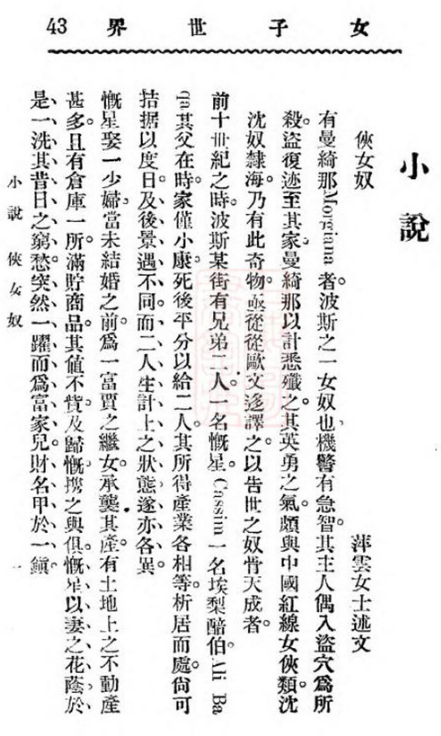 女子世界 43
小說
俠女奴
萍雲女士述文
有曼綺那Morgiana者。波斯之一女奴也。機警有急智。其主人偶入盜穴爲所
殺。盜復迹至其家。曼綺那以計悉殲之。其英勇之氣。頗與中國紅線女俠類。沈
沈奴隸海。乃有此奇物。亟從從歐文迻譯之。以告世之奴骨天成者。
前十世紀之時。波斯某街有兄弟二人。一名慨星Cassim一名埃梨醅伯Ali Ba
ba其父在時。家僅小康。死後平分以給二人。其所得產業各相等。析居而處。尙可
拮据以度日。及後景遇不同。而二人生計上之狀態、遂亦各異、
慨星娶一少婦。當未結婚之前。爲一富賈之繼女。承襲其產。有土地上之不動產
甚多。且有倉庫一所。滿貯商品。其值不貲。及歸慨。攜之與俱。慨星以妻之花蔭、於
是、一洗其昔日之窮愁、突然一躍而爲富家兒、財名甲於一鎭。
小說 俠女奴 一